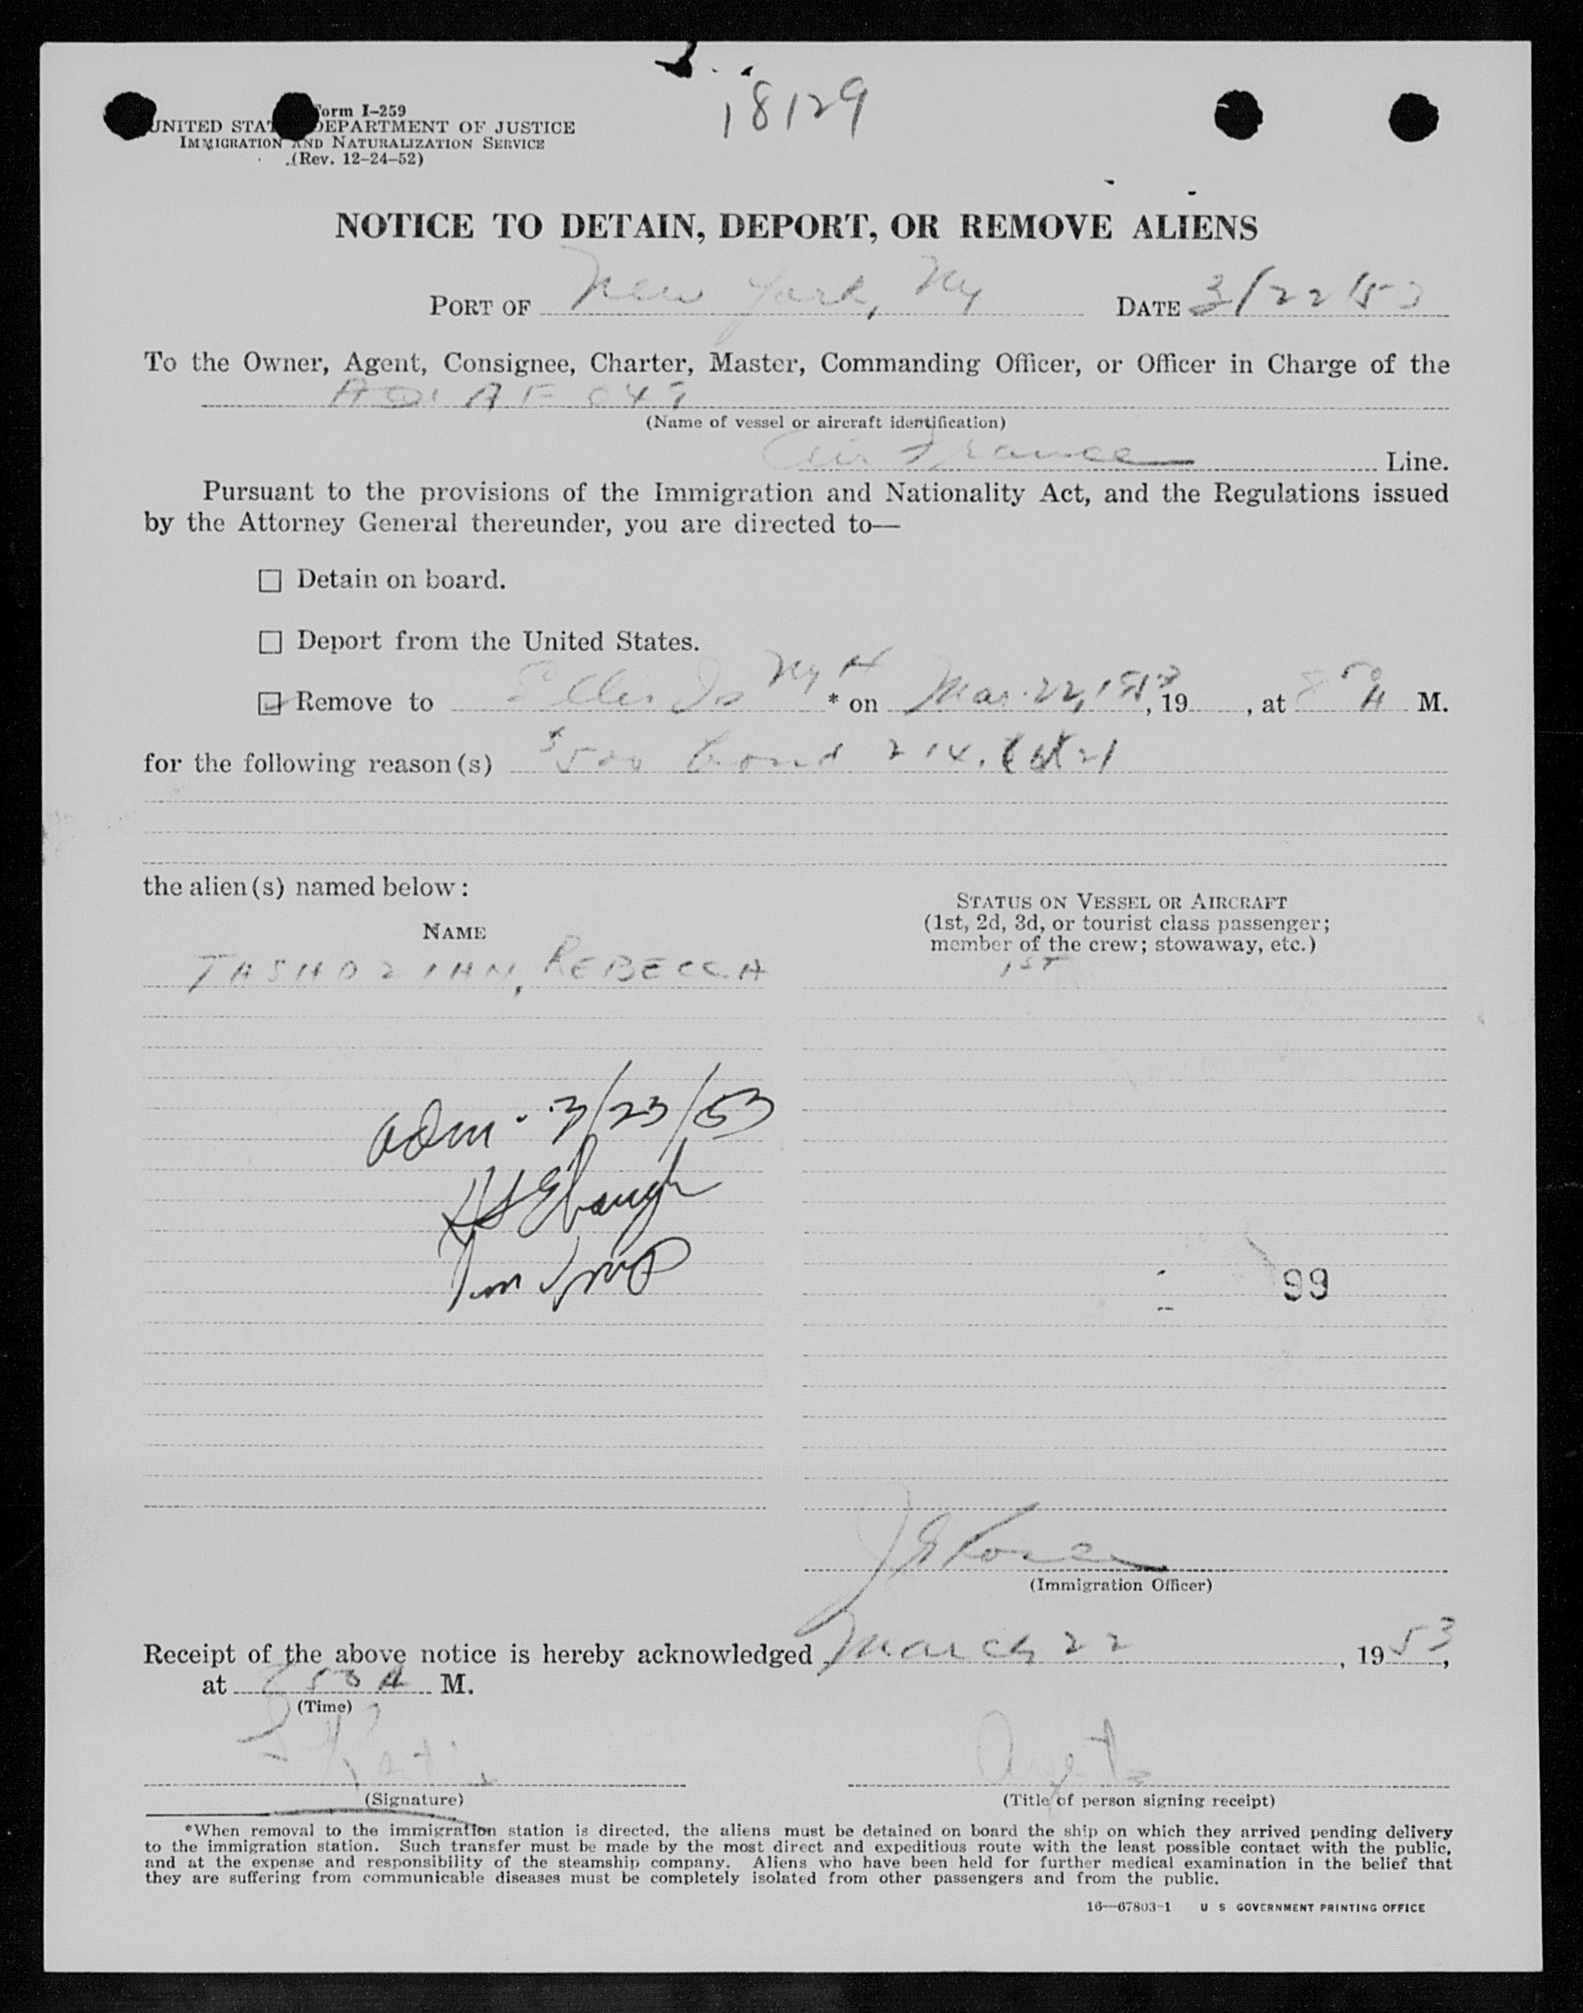 18129
Form I-259
UNITED STATES DEPARTMENT OF JUSTICE
IMMIGRATION AND NATURALIZATION SERVICE
(Rev. 12-24-52)
NOTICE TO DETAIN, DEPORT, OR REMOVE ALIENS
PORT OF New York, Ny DATE 3/22/53
To the Owner, Agent, Consignee, Charter, Master, Commanding Officer, or Officer in Charge of the
AF 049
(Name of vessel or aircraft identification)
Air France Line.
Pursuant to the provisions of the Immigration and Nationality Act, and the Regulations issued
by the Attorney General thereunder, you are directed to—
Detain on board.
Deport from the United States.
Remove to Ellis Is Ny H * on Mar. 22, 1953, 19 , at 8 50 A M.
for the following reason(s) $500 bond 214.
the alien(s) named below:
NAME
STATUS ON VESSEL OR AIRCRAFT
(1st, 2d, 3d, or tourist class passenger;
member of the crew; stowaway, etc.)
TASHDZIAN, REBECCA 1ST
adm. 3/23/53
HS Ebaugh
Imm Insp
99
(Immigration Officer)
Receipt of the above notice is hereby acknowledged March 22, 1953,
at 8 50 A M.
(Time)
Agt
(Signature)
(Title of person signing receipt)
*When removal to the immigration station is directed, the aliens must be detained on board the ship on which they arrived pending delivery
to the immigration station. Such transfer must be made by the most direct and expeditious route with the least possible contact with the public,
and at the expense and responsibility of the steamship company. Aliens who have been held for further medical examination in the belief that
they are suffering from communicable diseases must be completely isolated from other passengers and from the public.
16—67803-1 U S GOVERNMENT PRINTING OFFICE